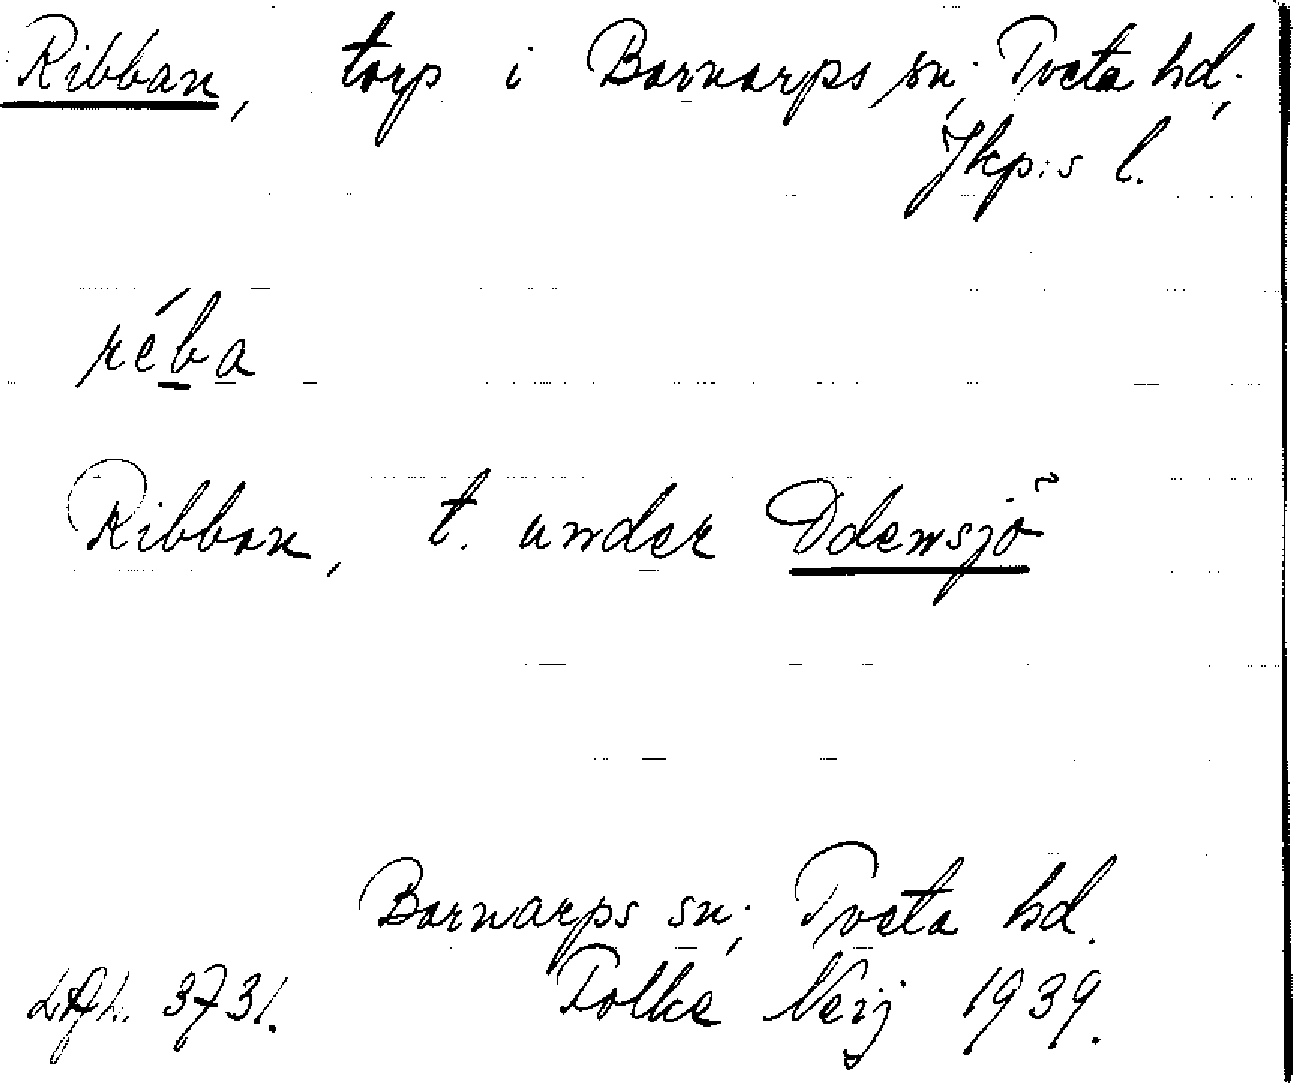 Ribban, torp i Barnarps sn; Tveta hd;
Jkp:s l.
réba
Ribban, t. under Odensjö
Barnarps sn; Tveta hd.
3731. Folke Neij 1939.